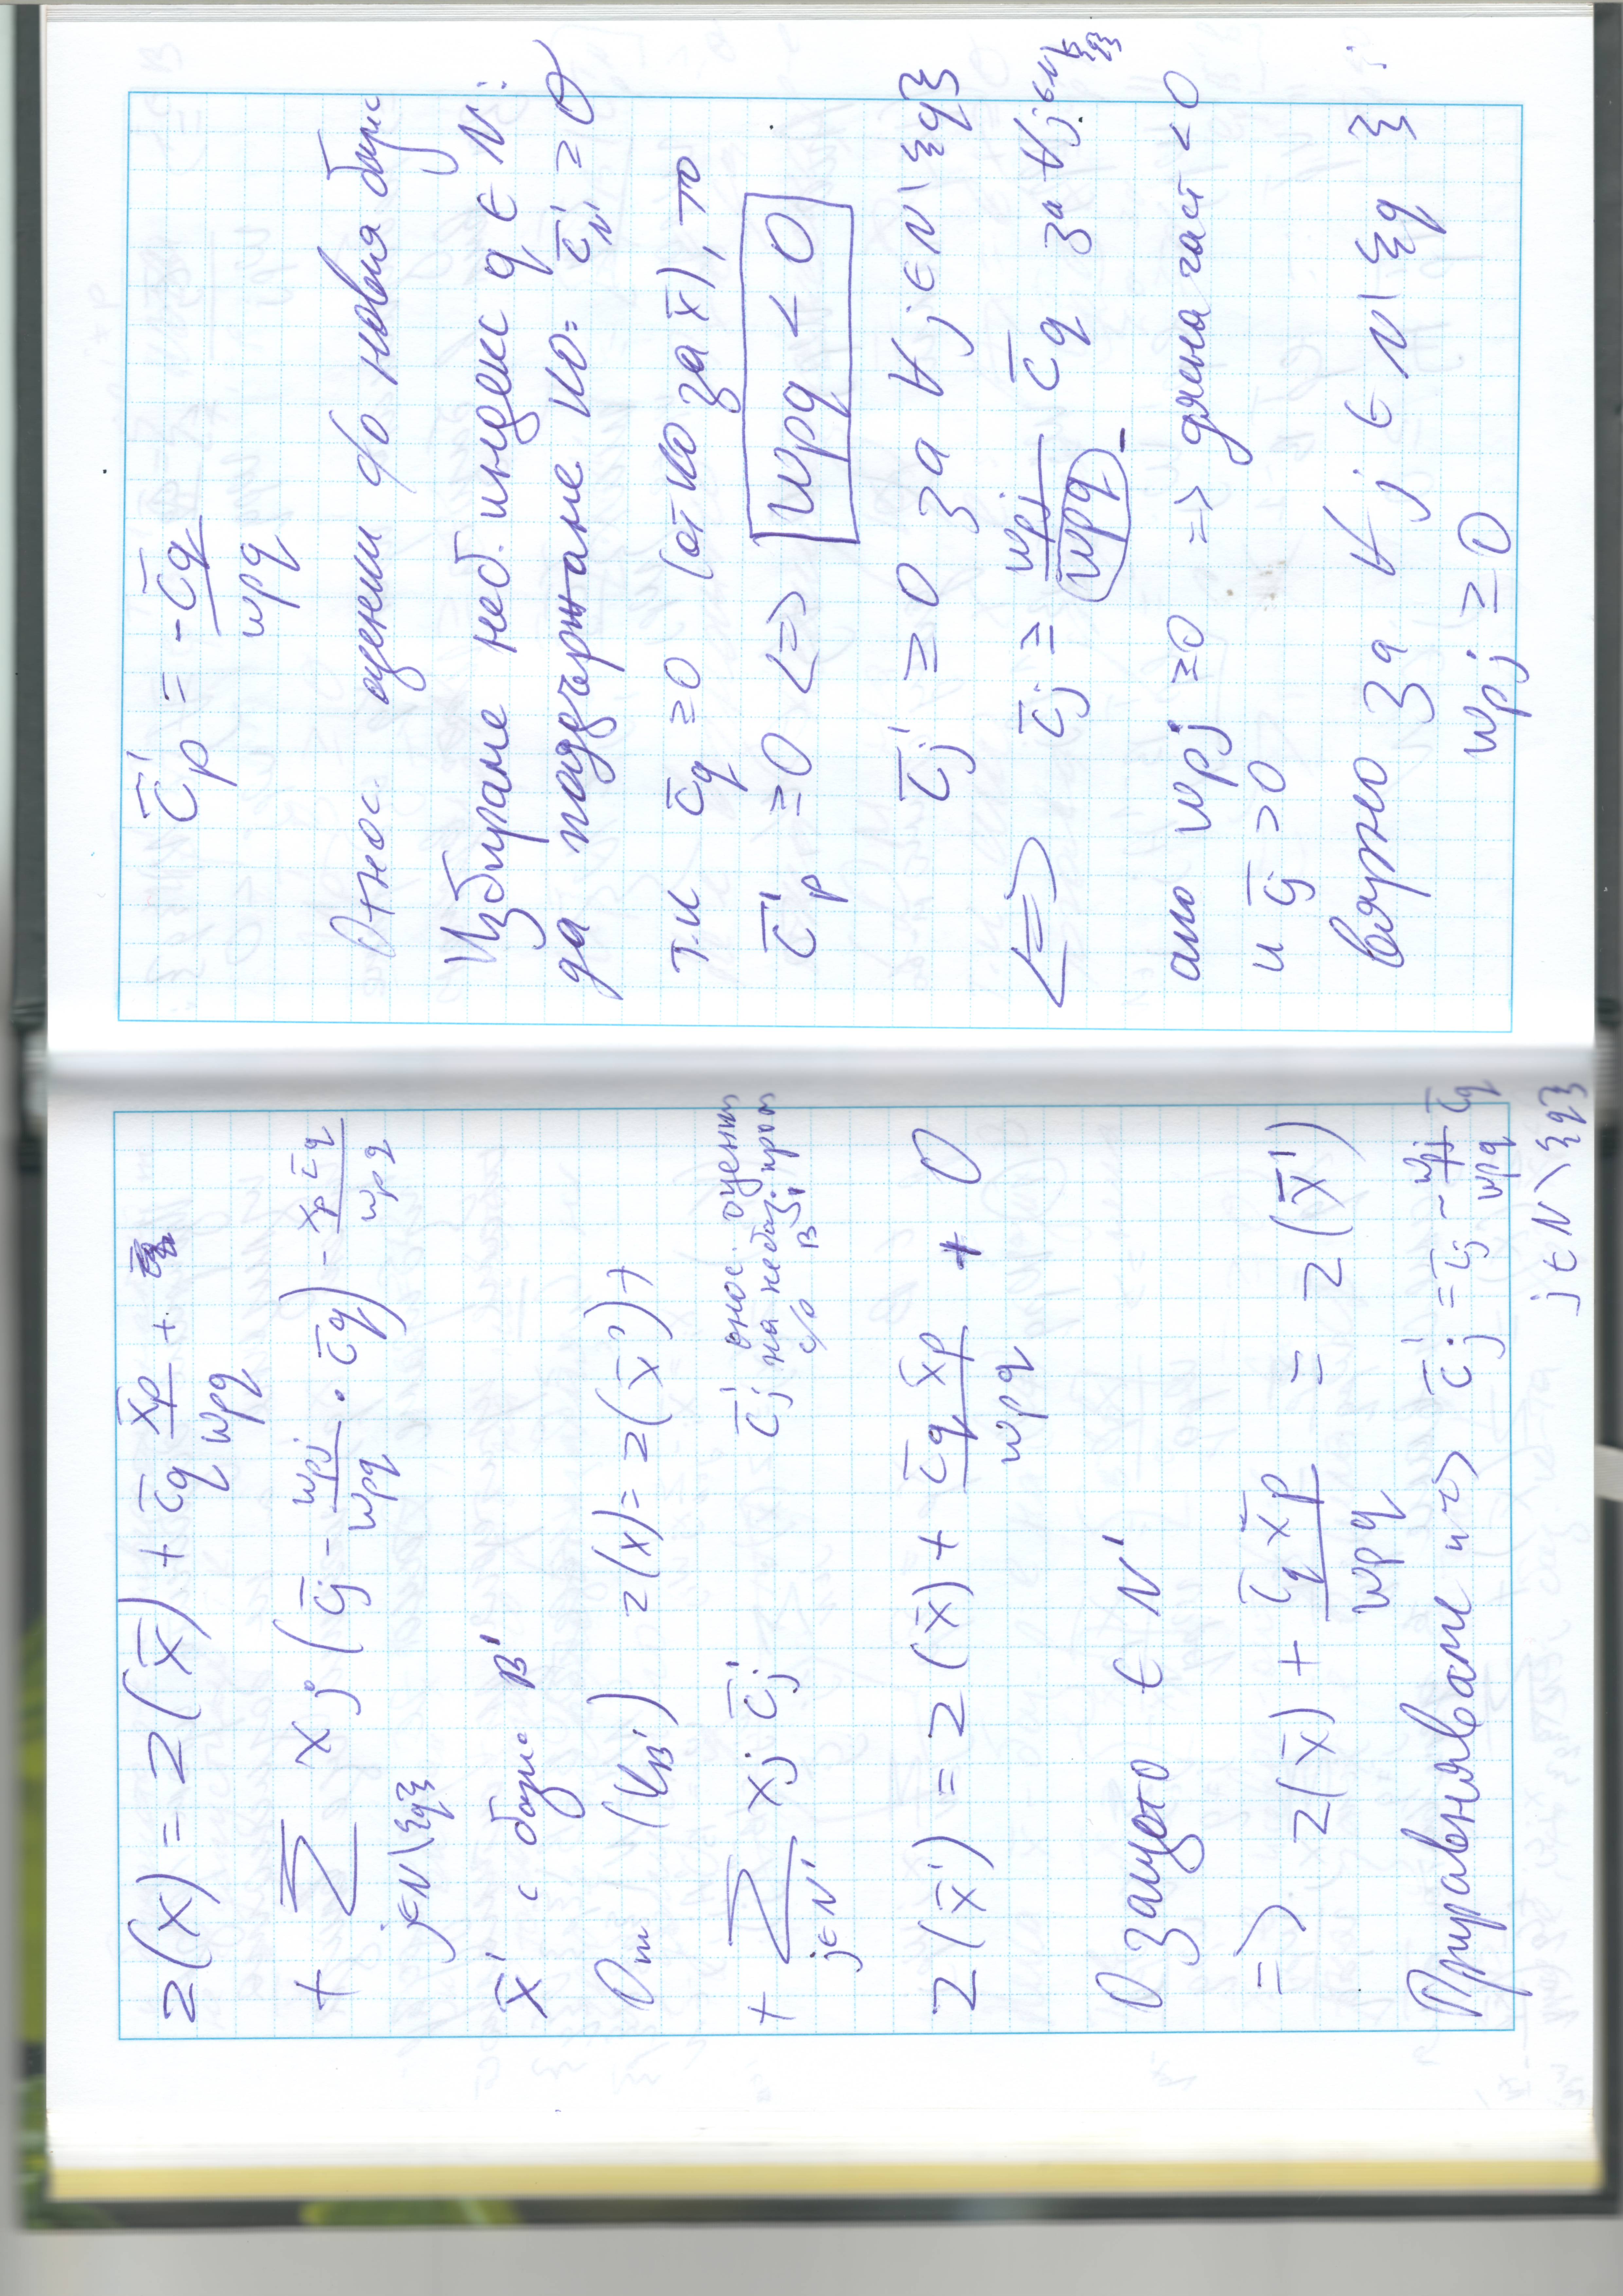 z(x) = z(x̄) + c̄q x̄p/wpq +
+ Σ j∈N\{q} xj (c̄j - wpj/wpq . c̄q) - xp c̄q/wpq
x̄' с базис B'
От (KB') z(x) = z(x̄') +
+ Σ j∈N' xj c̄j' c̄j' относ. оценки на небаз. пром с/о B'
z(x̄') = z(x̄) + c̄q x̄p/wpq + 0
0 защото ∈ N'
=> z(x̄) + c̄q x̄p/wpq = z(x̄')
Приравняваме и => c̄j' = c̄j - wpj/wpq c̄q
j ∈ N \ {q}
c̄p' = - c̄q/wpq
Относ. оценки с/о новия базис
Избираме неб. индекс q ∈ N :
да поддържаме КО= c̄N' ≥ 0
т.к c̄q ≥0 (от КО за x̄), то
c̄p' ≥0 <=> wpq < 0
c̄j' ≥ 0 за ∀ j ∈ N \ {q}
<=> c̄j ≥ wpj/wpq c̄q за ∀j∈N\{q}
ако wpj ≥0 => дясна част < 0
и c̄j >0
вярно за ∀ j ∈ N \ {q}
wpj ≥ 0